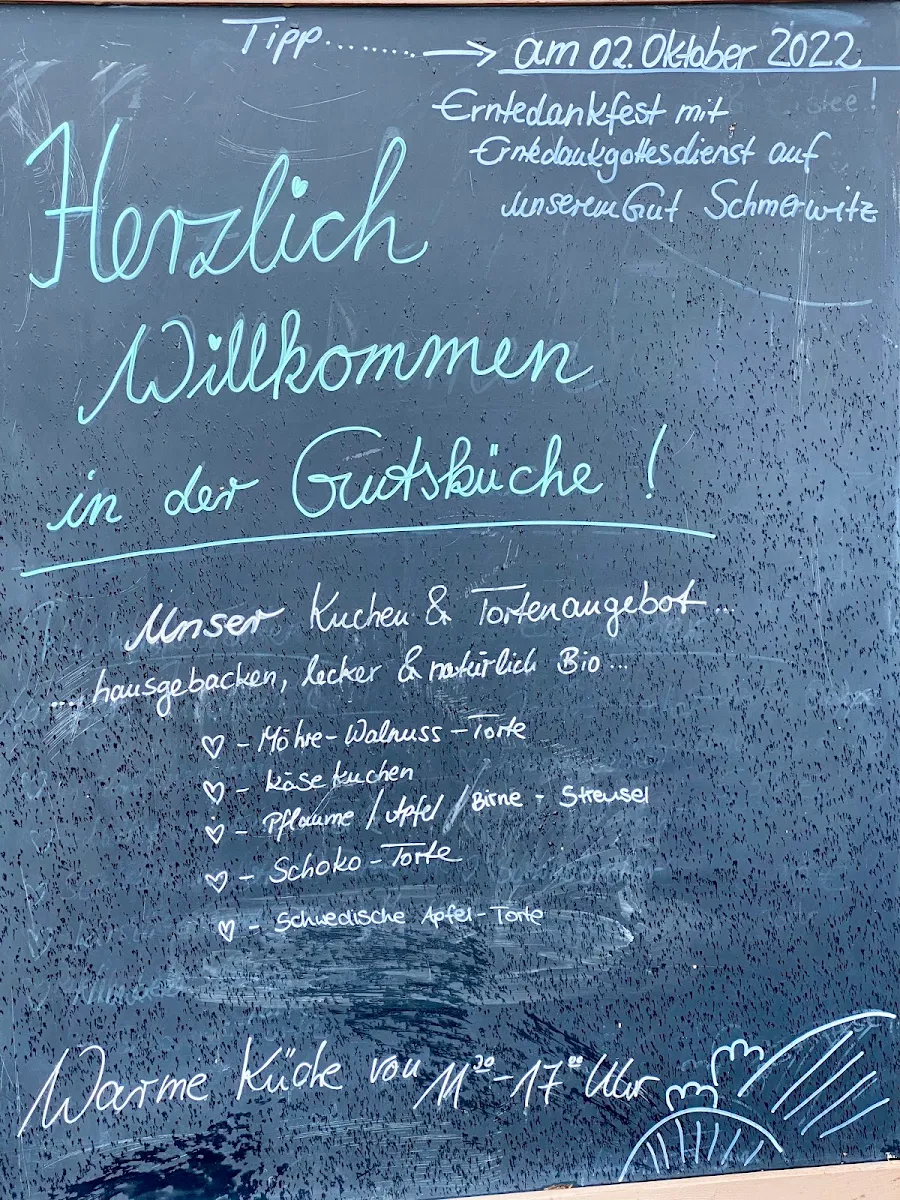 Tipp..........→ am 02. Oktober 2022
Erntedankfest mit
Erntedankgottesdienst auf
unserem Gut Schmerwitz
Herzlich
Willkommen
in der Gutsküche!
Unser Kuchen & Tortenangebot...
....hausgebacken, lecker & natürlich Bio...
♡ - Möhre-Walnuss-Torte
♡ - Käsekuchen
♡ - Pflaume / Apfel / Birne - Streusel
♡ - Schoko-Torte
♡ - Schwedische Apfel-Torte
Warme Küche von 11³⁰-17⁰⁰ Uhr